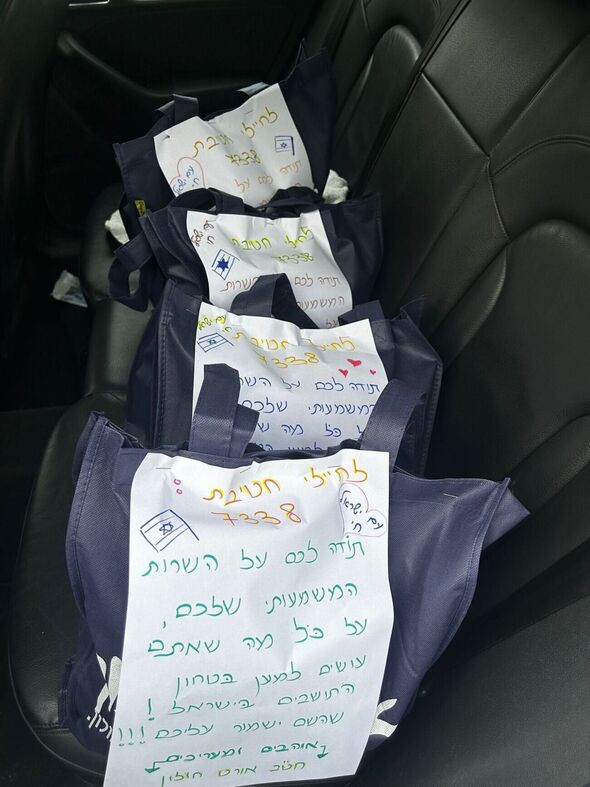 לחיילי חטיבת
7338
עם ישראל
חי
תודה לכם על
לחיילי חטיבה
7338
תודה לכם
השרות
המשמעותי
על
לחיילי חטיבת
7338
תודה לכם על השרות
המשמעותי שלכם
על כל מה
לחיילי חטיבת
7338
עם ישראל
חי
תודה לכם על השרות
המשמעותי שלכם,
על כל מה שאתם
עושים למען בטחון
התושבים בישראל!
שהשם ישמור עליכם!!!
אוהבים ומעריכים
חט"ב אורט חולון